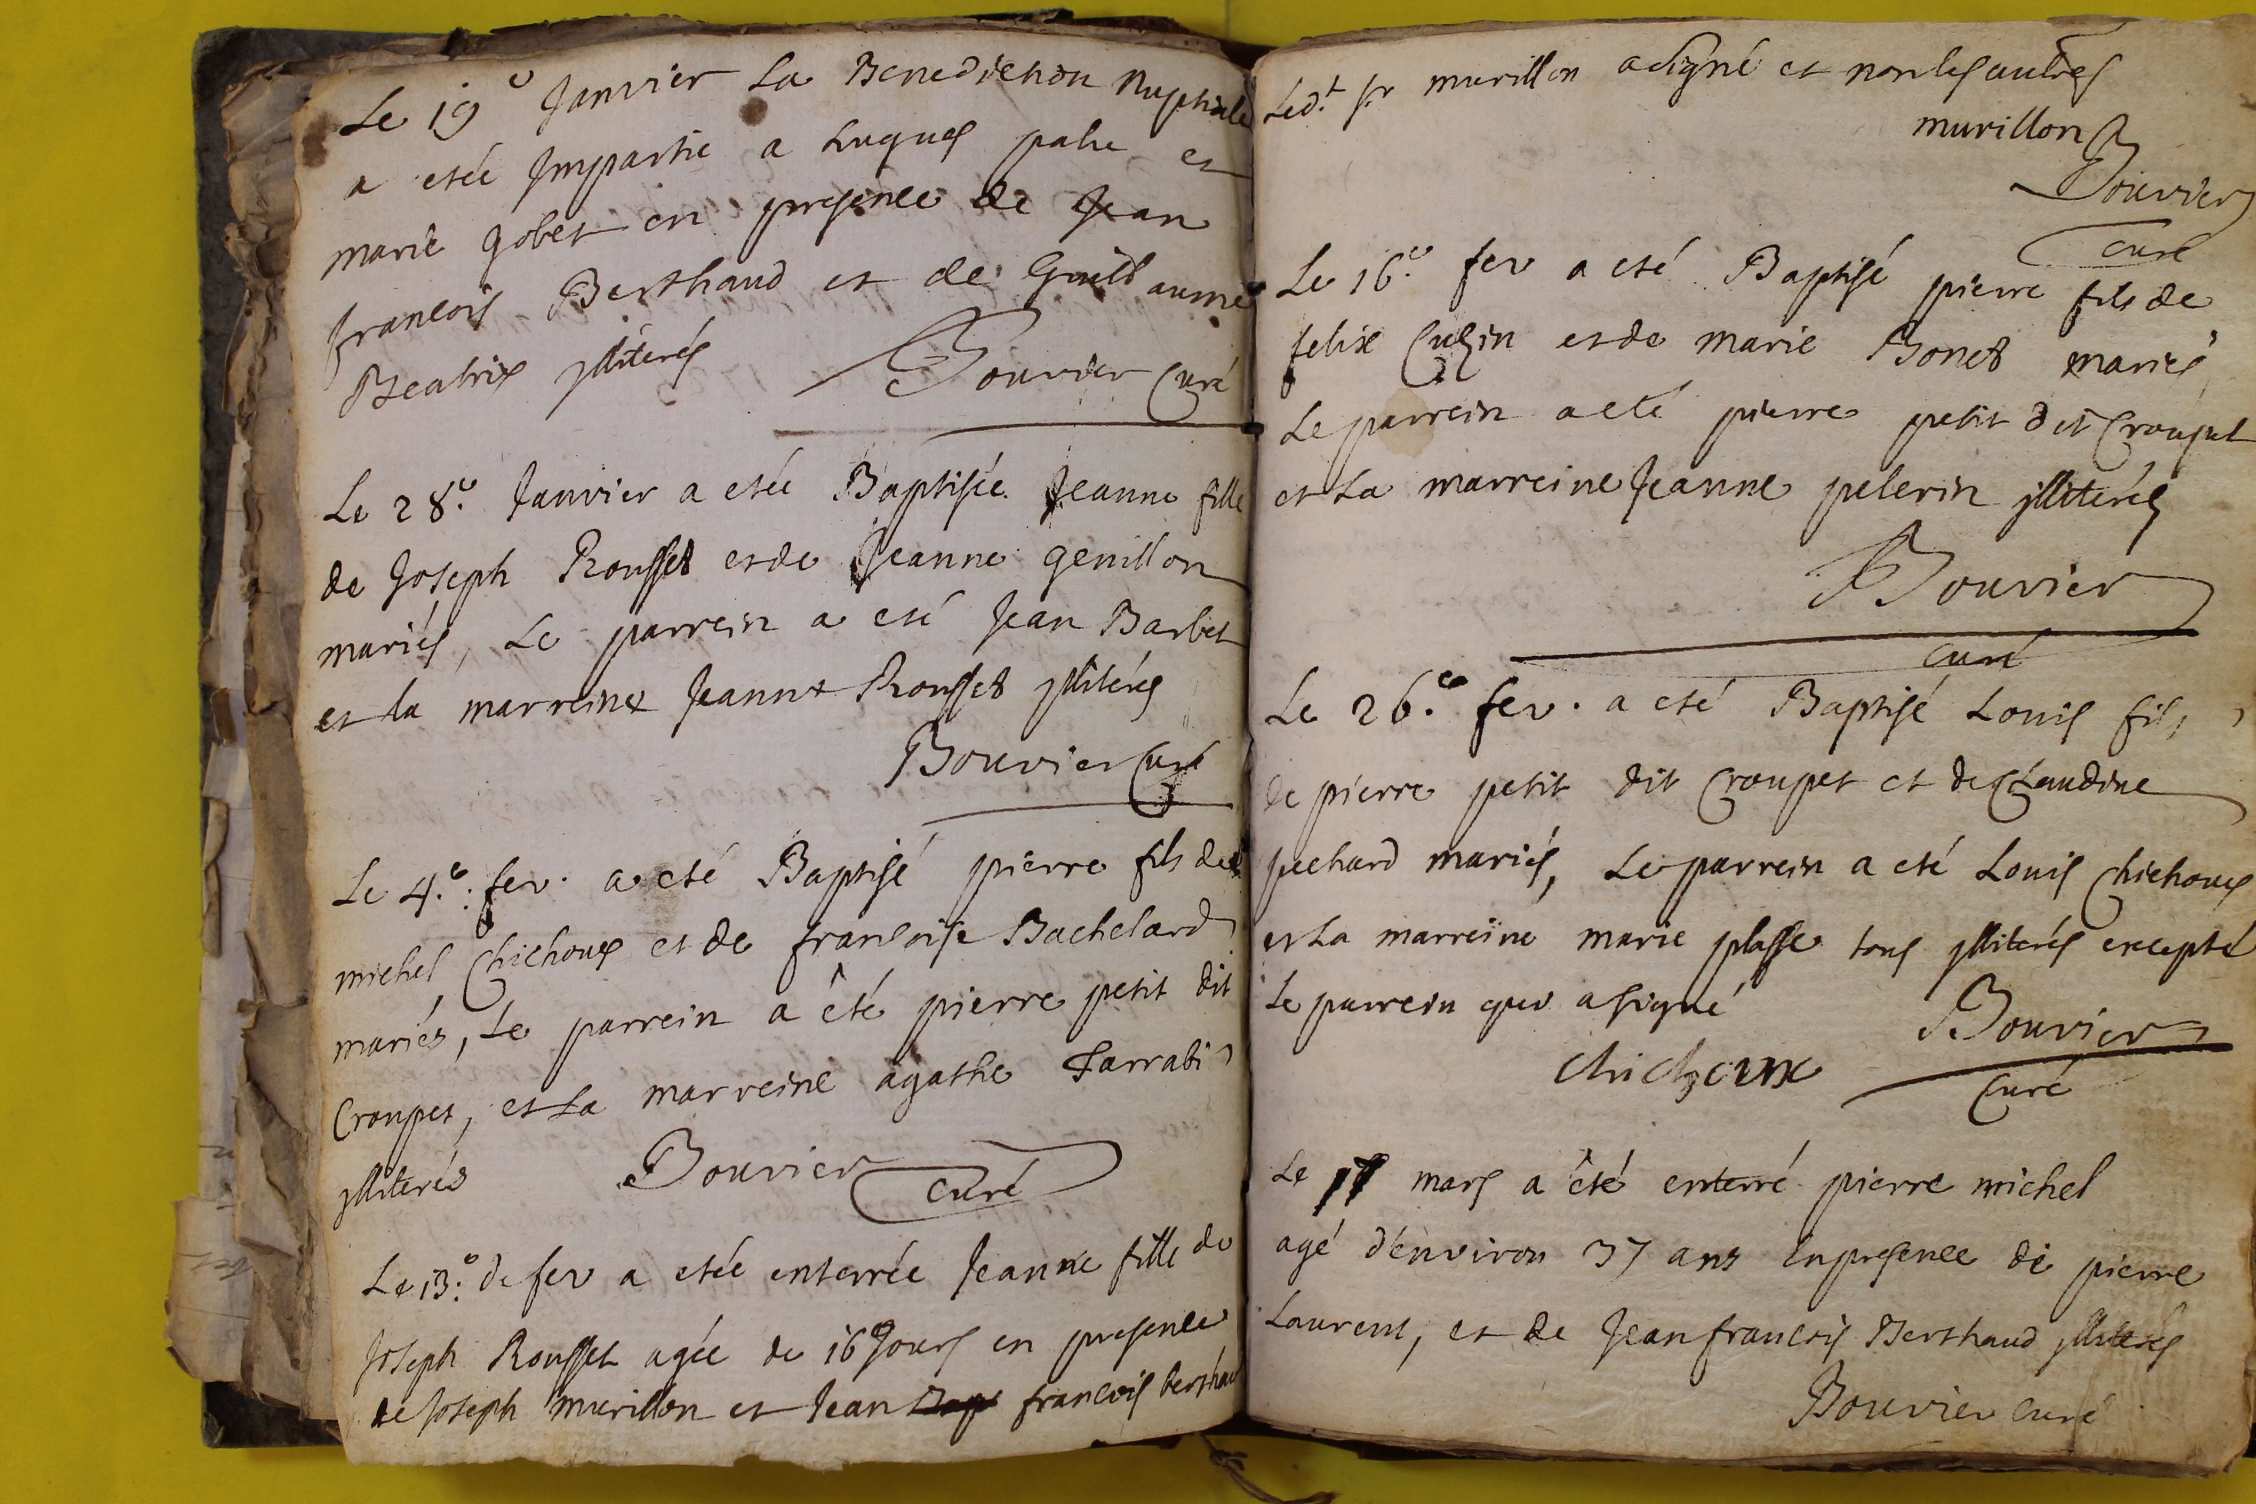 Le 19e Janvier La Benediction Nuptiale
a etée Impartie a Luques palu et
marie gobet en presence de Jean
francois Berthaud et de Guillaume
Beatrix illiterés Bouvier Curé
Le 28e. Janvier a etée Baptisée Jeanne fille
de Joseph Rousset et de Jeanne genillon
mariés, Le parrein a eté Jean Barbet
et La marreine Jeanne Rousset illiterés
Bouvier Curé
Le 4e. fev. a eté Baptisé pierre fils de
michel Chichoux et de francoise Bachelard
mariés, Le parrein a êté pierre petit dit
Croupet, et La marreine agathe Tarrabi
illiterés Bouvier curé
Le 13e. de fev a etée enterrée Jeanne fille de
Joseph Rousset agée de 16 Jours en presence
de Joseph murillon et Jean francois berthaud
Led.t sr murillon a signé et non les autres
murillon
Bouvier
curé
Le 16e. fev a eté Baptisé pierre fils de
felix Cuzin et de marie Bonet mariés
Le parrein a eté pierre petit dit Croupet
et La marreine Jeanne pelerin illiterés
Bouvier
curé
Le 26e. fev. a eté Baptisé Louis fils
de pierre petit dit Croupet et de Claudine
pechard mariés, Le parrein a eté Louis Chichoux
et La marreine marie plasse tous illiterés excepté
Le parrein qui a signé
Bouvier
chichoux
Curé
Le mars a êté enterré pierre michel
agé d'environ 37 ans en presence de pierre
Laurent, et de Jean francois Berthaud illiterés
Bouvier curé